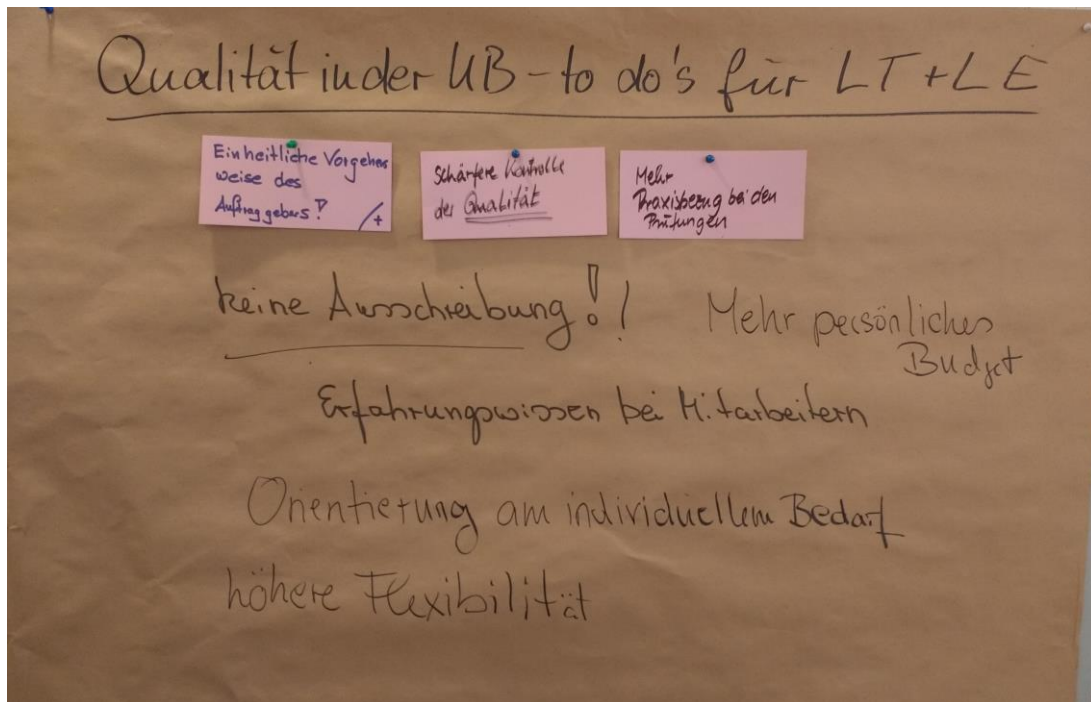 Qualität in der UB - to do's für LT + LE
Einheitliche Vorgehens
weise des
Auftraggebers!
/+
Schärfere Kontrolle
der Qualität
Mehr
Praxisbezug bei den
Prüfungen
keine Ausschreibung!!
Mehr persönliches
Budget
Erfahrungswissen bei Mitarbeitern
Orientierung am individuellem Bedarf
höhere Flexibilität